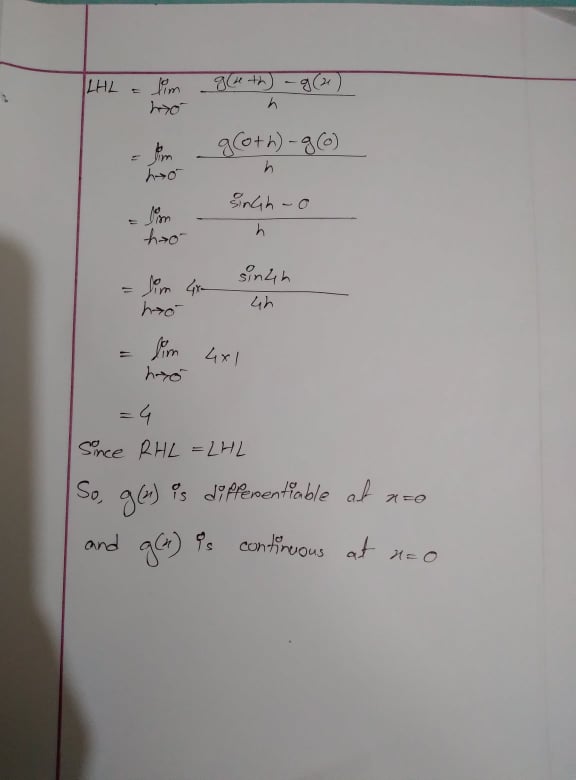 LHL = lim h→0⁻ g(x+h) - g(x) / h
= lim h→0⁻ g(0+h) - g(0) / h
= lim h→0⁻ sin4h - 0 / h
= lim h→0⁻ 4× sin4h / 4h
= lim h→0⁻ 4×1
= 4
Since RHL = LHL
So, g(x) is differentiable at x=0
and g(x) is continuous at x=0